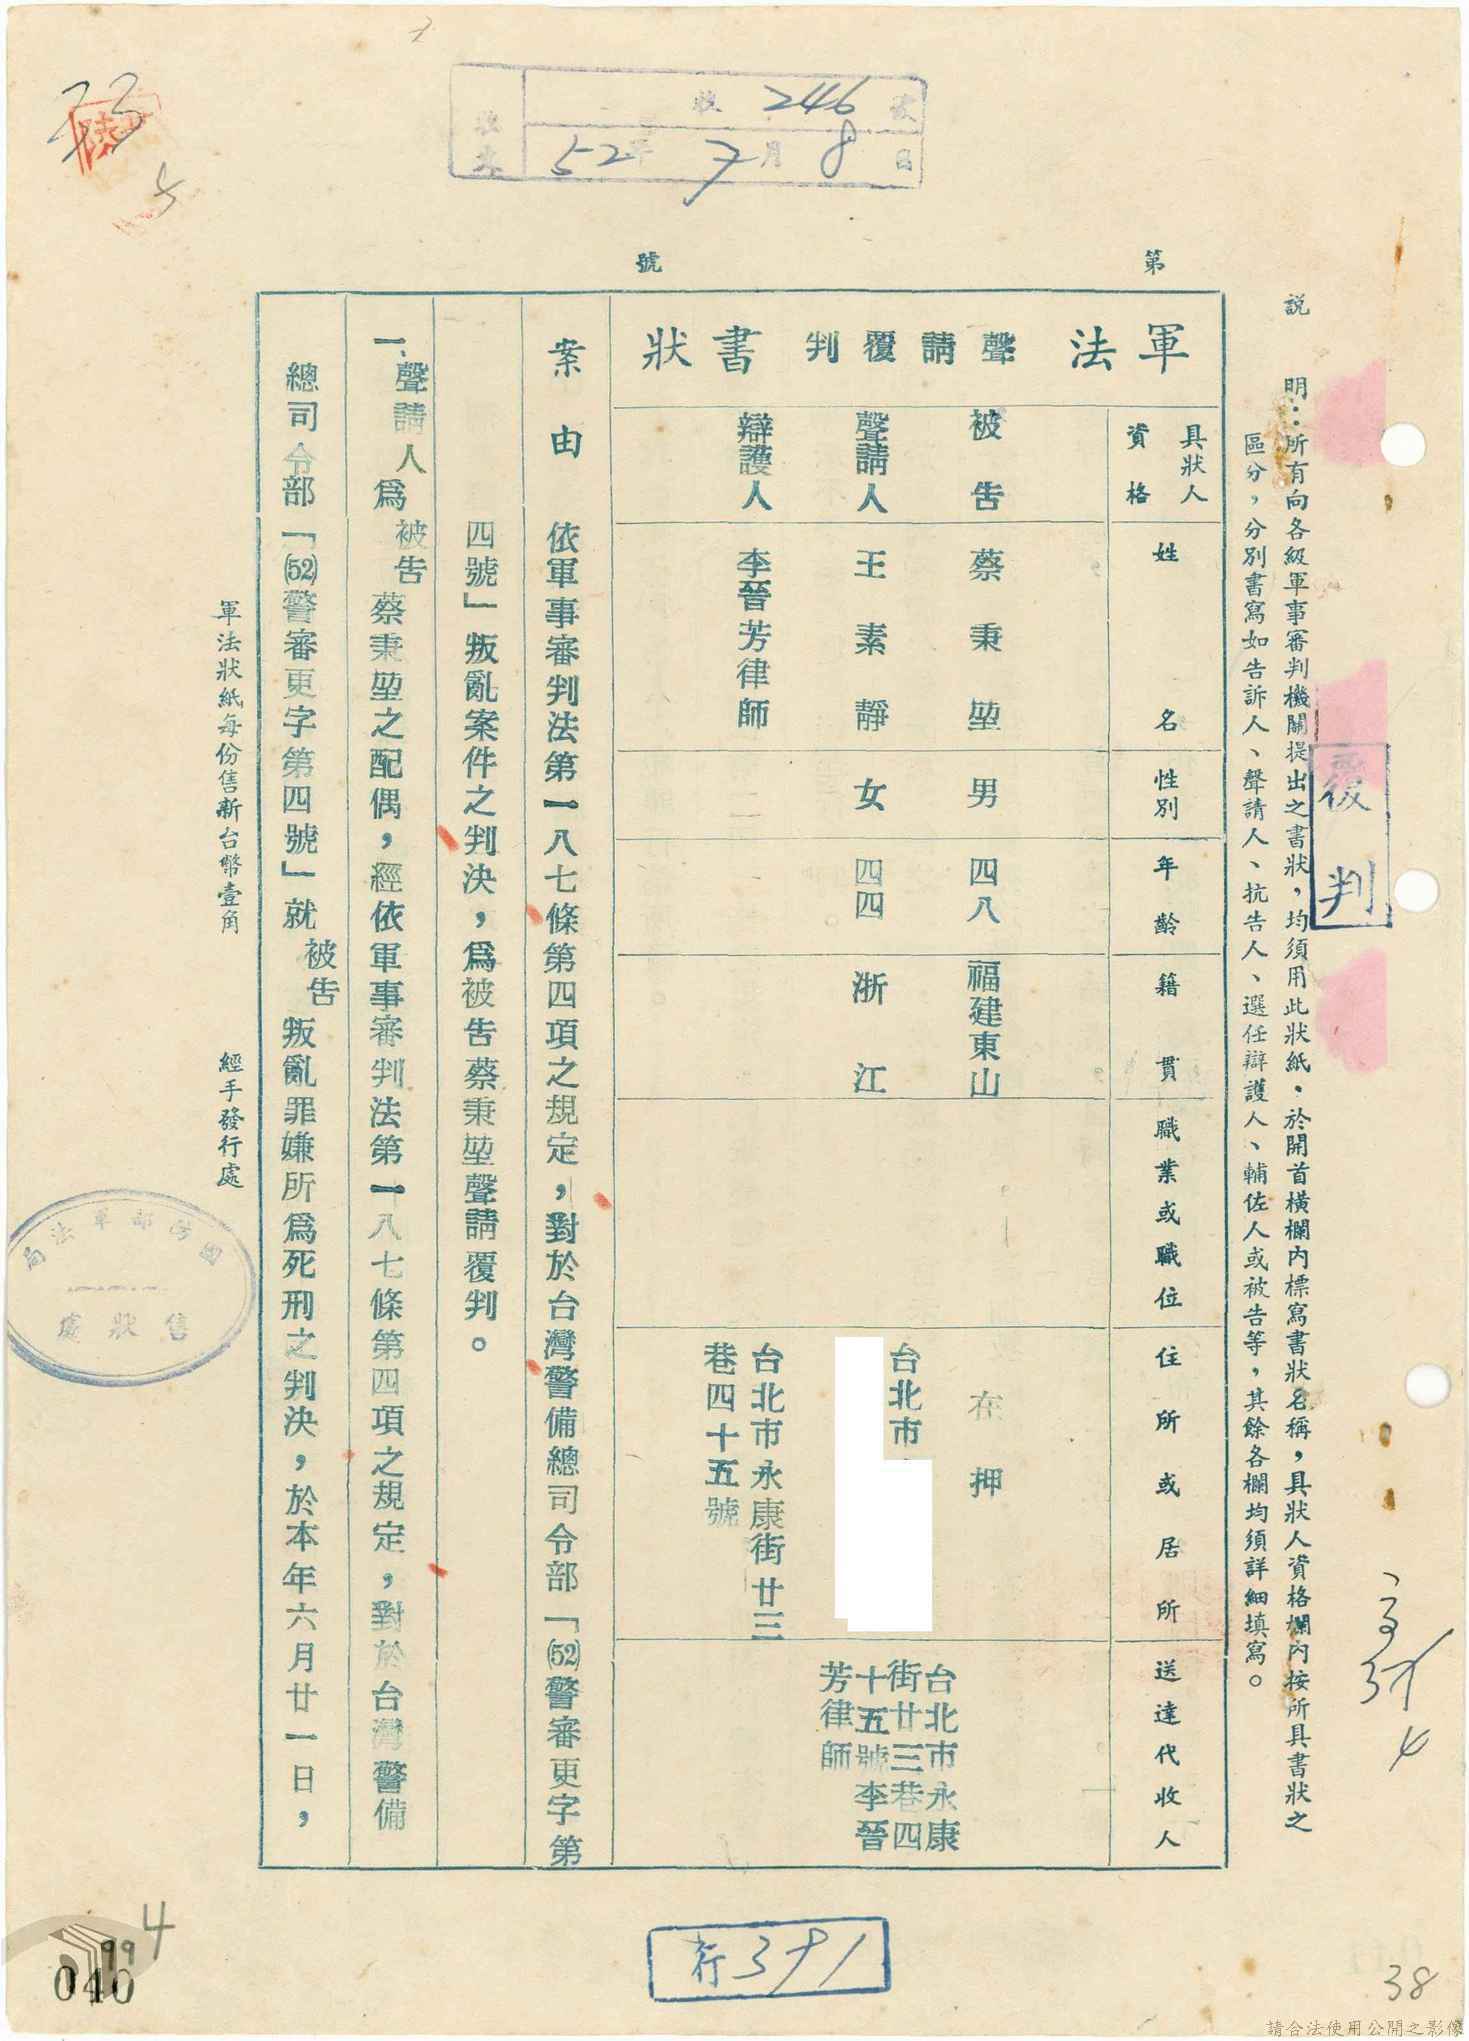 收 246 號
收文
52年7月8日
第 號
說 明：所有向各級軍事審判機關提出之書狀，均須用此狀紙．於開首橫欄內標寫書狀名稱，具狀人資格欄內按所具書狀之
區分，分別書寫如告訴人、聲請人、抗告人、選任辯護人、輔佐人或被告等，其餘各欄均須詳細填寫。
覆判
軍法聲請覆判書狀
具狀人資格
姓名
性別
年齡
籍貫
職業或職位
住所或居所
送達代收人
被告
蔡秉堃
男
四八
福建東山
在押
台北市永康
街廿三巷四
十五號李晉
芳律師
聲請人
王素靜
女
四四
浙江
台北市
辯護人
李晉芳律師
台北市永康街廿三
巷四十五號
案由
依軍事審判法第一八七條第四項之規定，對於台灣警備總司令部「(52)警審更字第
四號」叛亂案件之判決，為被告蔡秉堃聲請覆判。
一、聲請人為被告蔡秉堃之配偶，經依軍事審判法第一八七條第四項之規定，對於台灣警備
總司令部「(52)警審更字第四號」就被告叛亂罪嫌所為死刑之判決，於本年六月廿一日，
軍法狀紙每份售新台幣壹角 經手發行處
國防部軍法局
售狀處
4
99
040
38
請合法使用公開之影像